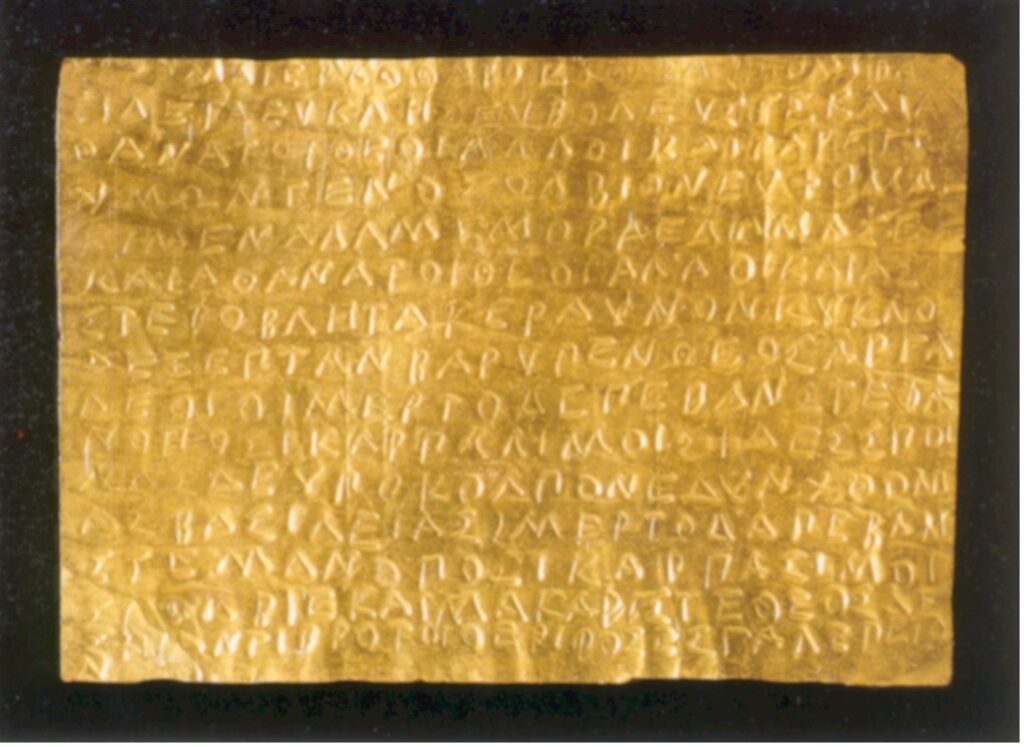 ΙΛΕΙΑΕΥΚΛΗΣΕΥΒΟΛΕΥΣΤΕΚΑΙΑ
ΘΑΝΑΤΟΙΘΕΟΙΑΛΛΟΙΚΑΙΓΑΡΕΓΩ
ΝΥΜΩΜΓΕΝΟΣΟΛΒΙΟΝΕΥΧΟΜΑ
ΙΜΕΝΑΛΛΑΜΕΜΟΡΑΕΔΑΜΑΣΕ
ΚΑΙΑΘΑΝΑΤΟΙΘΕΟΙΑΛΛΟΙΚΑΙΑ
ΣΤΕΡΟΒΛΗΤΑΚΕΡΑΥΝΟΝΚΥΚΛΟ
ΔΕΞΕΠΤΑΝΒΑΡΥΠΕΝΘΕΟΣΑΡΓΑ
ΛΕΟΙΟΙΜΕΡΤΟΔΕΠΕΒΑΝΣΤΕΦΑ
ΝΟΠΟΣΙΚΑΡΠΑΛΙΜΟΙΣΙΔΕΣΣΠΟΙ
ΔΕΥΠΟΚΟΛΠΟΝΕΔΥΝΧΘΟΝΙ
ΑΣΒΑΣΙΛΕΙΑΣΙΜΕΡΤΟΔΑΠΕΒΑΝ
ΣΤΕΜΑΝΟΠΟΣΙΚΑΡΠΑΣΙΜΟΙ
ΣΙΟΛΒΙΕΚΑΙΜΑΚΑΡΙΣΤΕΘΕΟΣΔΕ
ΣΗΙΑΝΤΙΒΡΟΤΟΙΟΕΡΙΦΟΣΕΣΓΑΛΕΠΕΤΟ
Ν